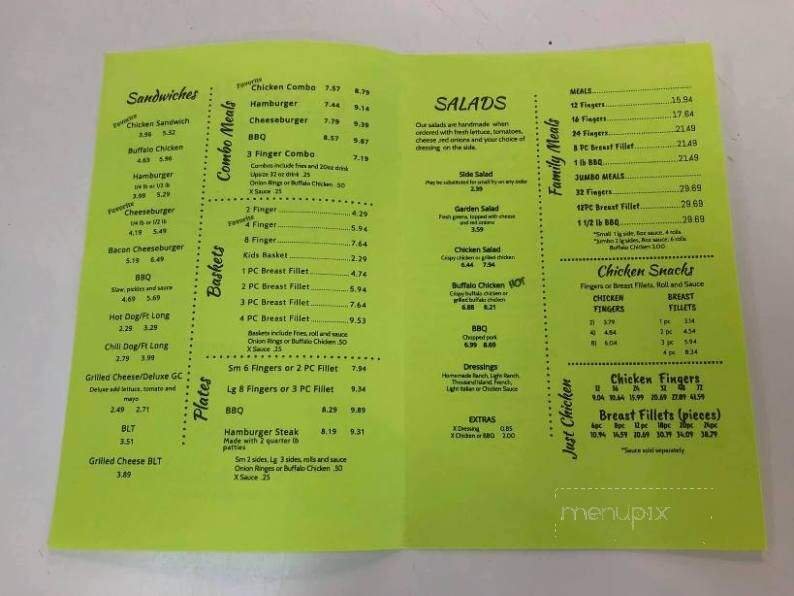 Sandwiches
Favorite
Chicken Sandwich
3.96 5.32
Buffalo Chicken
4.63 5.96
Hamburger
1/4 lb or 1/2 lb
3.99 5.29
Favorite
Cheeseburger
1/4 lb or 1/2 lb
4.19 5.49
Bacon Cheeseburger
5.19 6.49
BBQ
Slaw, pickles and sauce
4.69 5.69
Hot Dog/Ft Long
2.29 3.29
Chili Dog/Ft Long
2.79 3.99
Grilled Cheese/Deluxe GC
Deluxe add lettuce, tomato and
mayo
2.49 2.71
BLT
3.51
Grilled Cheese BLT
3.89
Combo Meals
Favorite
Chicken Combo 7.57 8.79
Hamburger 7.44 9.14
Cheeseburger 7.79 9.39
BBQ 8.57 9.67
3 Finger Combo 7.19
Combos include fries and 20oz drink
Upsize 32 oz drink .25
Onion Rings or Buffalo Chicken .50
X Sauce .25
Baskets
2 Finger 4.29
Favorite
4 Finger 5.94
8 Finger 7.64
Kids Basket 2.29
1 PC Breast Fillet 4.74
2 PC Breast Fillet 5.94
3 PC Breast Fillet 7.64
4 PC Breast Fillet 9.53
Baskets include Fries, roll and sauce
Onion Rings or Buffalo Chicken .50
X Sauce .25
Plates
Sm 6 Fingers or 2 PC Fillet 7.94
Lg 8 Fingers or 3 PC Fillet 9.34
BBQ 8.29 9.89
Hamburger Steak 8.19 9.31
Made with 2 quarter lb
patties
Sm 2 sides, Lg 3 sides, rolls and sauce
Onion Ringes or Buffalo Chicken .50
X Sauce .25
SALADS
Our salads are handmade when
ordered with fresh lettuce, tomatoes,
cheese ,red onions and your choice of
dressing on the side.
Side Salad
May be substituted for small fry on any order
2.39
Garden Salad
Fresh greens, topped with cheese
and red onions
3.59
Chicken Salad
Crispy chicken or grilled chicken
6.44 7.94
Buffalo Chicken HOT
Crispy buffalo chicken or
grilled buffalo chicken
6.88 8.21
BBQ
Chopped pork
6.99 8.69
Dressings
Homemade Ranch, Light Ranch,
Thousand Island, French,
Light Italian or Chicken Sauce
EXTRAS
X Dressing 0.85
X Chicken or BBQ 2.00
Family Meals
MEALS
12 Fingers 15.94
16 Fingers 17.64
24 Fingers 21.49
8 PC Breast Fillet 21.49
1 lb BBQ 21.49
JUMBO MEALS
32 Fingers 29.69
12PC Breast Fillet 29.69
1 1/2 lb BBQ 29.69
*Small 1 lg side, 8oz sauce, 4 rolls
*Jumbo 2 lg sides, 8oz sauce, 6 rolls
Buffalo Chicken 2.00
Chicken Snacks
Fingers or Breast Fillets, Roll and Sauce
CHICKEN FINGERS
2) 3.79
4) 4.64
6) 6.04
BREAST FILLETS
1 pc 3.14
2 pc 4.54
3 pc 5.94
4 pc 8.34
Just Chicken
Chicken Fingers
12 16 24 32 48 72
9.04 10.64 15.99 20.69 27.89 41.59
Breast Fillets (pieces)
6pc 8pc 12 pc 18pc 20pc 24pc
10.94 14.59 20.69 30.19 34.09 38.79
*Sauce sold separately
menupix